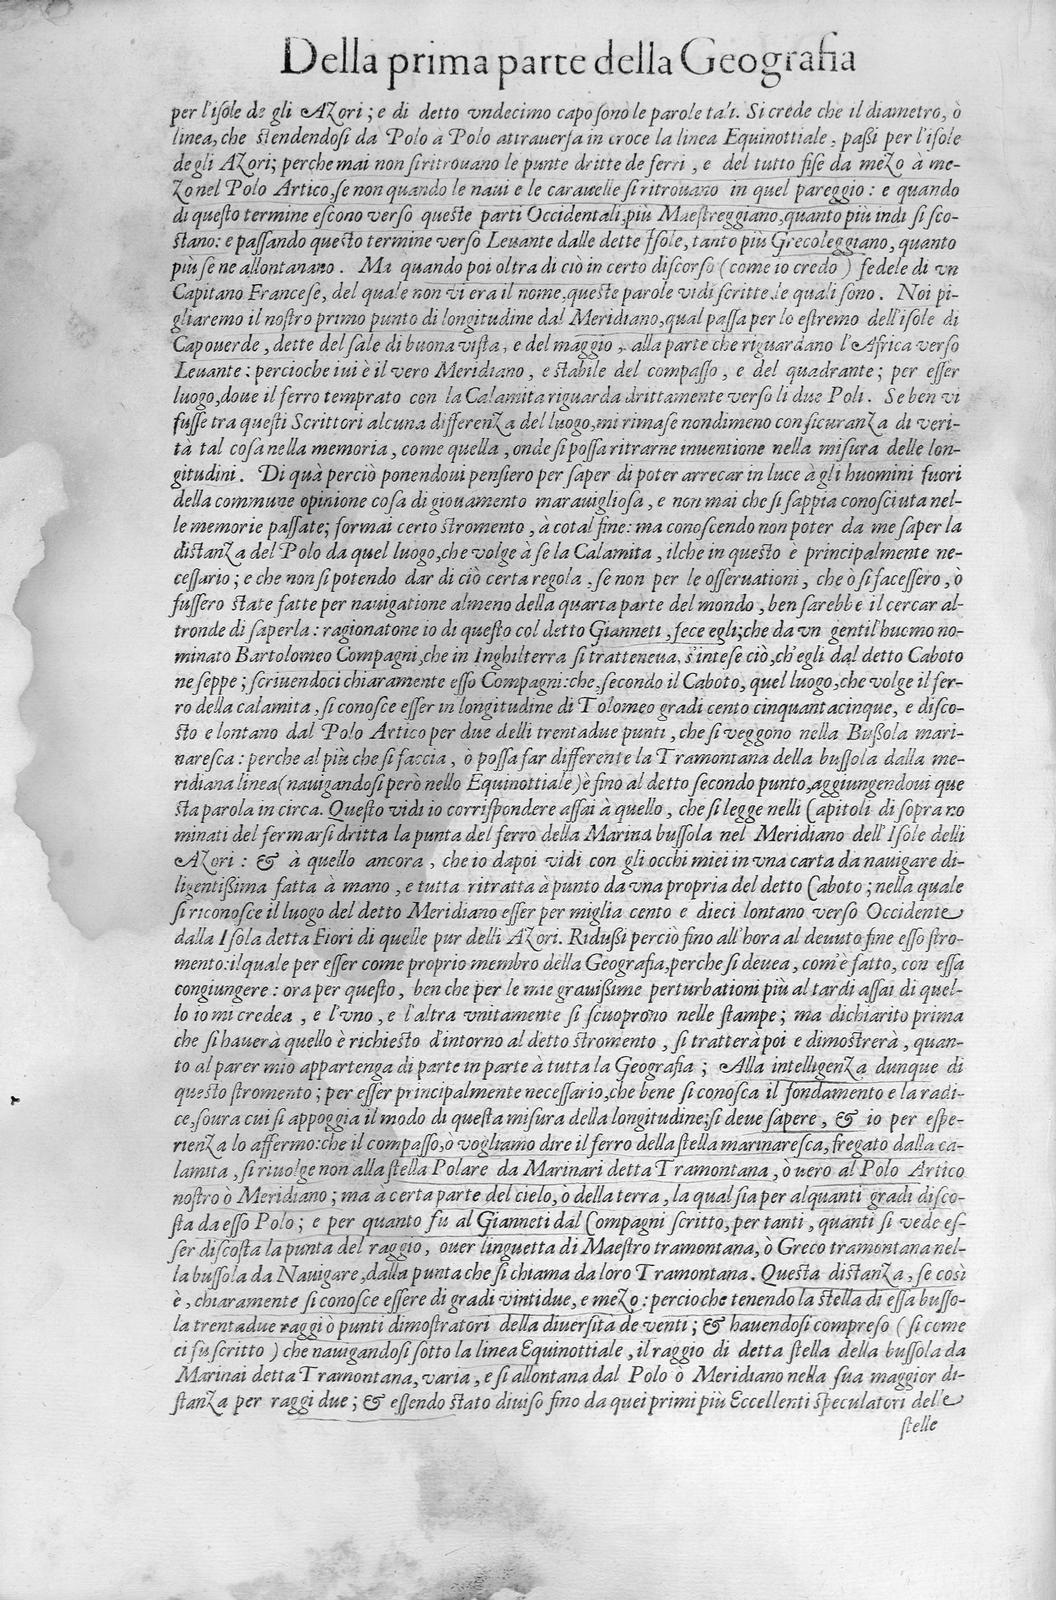 Della prima parte della Geografia
per l'isole de gli Azori; e di detto vndecimo capo sono le parole tali. Si crede che il diametro, ò
linea, che stendendosi da Polo à Polo attrauersa in croce la linea Equinottiale, passi per l'isole
de gli Azori; perche mai non si ritrouano le punte dritte de ferri, e del tutto fise da mezo à me-
zo nel Polo Artico, se non quando le naui e le carauelle si ritrouano in quel pareggio: e quando
di questo termine escono verso queste parti Occidentali, più Maestreggiano, quanto più indi si sco-
stano: e passando questo termine verso Leuante dalle dette Isole, tanto più Grecoleggiano, quanto
più se ne allontanano. Ma quando poi oltra di ciò in certo discorso (come io credo) fedele di vn
Capitano Francese, del quale non vi era il nome, queste parole vidi scritte, le quali sono. Noi pi-
gliaremo il nostro primo punto di longitudine dal Meridiano, qual passa per lo estremo dell'isole di
Capouerde, dette del sale di buona vista, e del maggio, alla parte che riguardano l'Africa verso
Leuante: percioche iui è il vero Meridiano, e stabile del compasso, e del quadrante; per esser
luogo, doue il ferro temprato con la Calamita riguarda drittamente verso li due Poli. Se ben vi
fusse tra questi Scrittori alcuna differenza del luogo, mi rimase nondimeno con sicuranza di veri-
tà tal cosa nella memoria, come quella, onde si possa ritrarne inuentione nella misura delle lon-
gitudini. Di quà perciò ponendoui pensiero per saper di poter arrecar in luce à gli huomini fuori
della commune opinione cosa di giouamento marauigliosa, e non mai che si sappia conosciuta nel-
le memorie passate; formai certo stromento, à cotal fine: ma conoscendo non poter da me saper la
distanza del Polo da quel luogo, che volge à se la Calamita, ilche in questo è principalmente ne-
cessario; e che non si potendo dar di ciò certa regola, se non per le osseruationi, che ò si facessero, ò
fussero state fatte per nauigatione almeno della quarta parte del mondo, ben sarebbe il cercar al-
tronde di saperla: ragionatone io di questo col detto Gianneti, fece egli; che da vn gentil'huomo no-
minato Bartolomeo Compagni, che in Inghilterra si tratteneua, s'intese ciò, ch'egli dal detto Caboto
ne seppe; scriuendoci chiaramente esso Compagni: che, secondo il Caboto, quel luogo, che volge il fer-
ro della calamita, si conosce esser in longitudine di Tolomeo gradi cento cinquantacinque, e disco-
sto e lontano dal Polo Artico per due delli trentadue punti, che si veggono nella Bussola mari-
naresca: perche al più che si faccia, ò possa far differente la Tramontana della bussola dalla me-
ridiana linea (nauigandosi però nello Equinottiale) è fino al detto secondo punto, aggiungendoui que
sta parola in circa. Questo vidi io corrispondere assai à quello, che si legge nelli Capitoli di sopra no
minati del fermarsi dritta la punta del ferro della Marina bussola nel Meridiano dell'Isole delli
Azori: & à quello ancora, che io dapoi vidi con gli occhi miei in vna carta da nauigare di-
ligentissima fatta à mano, e tutta ritratta à punto da vna propria del detto Caboto; nella quale
si riconosce il luogo del detto Meridiano esser per miglia cento e dieci lontano verso Occidente
dalla Isola detta Fiori di quelle pur delli Azori. Ridussi perciò fino all'hora al deuuto fine esso stro-
mento: il quale per esser come proprio membro della Geografia, perche si deuea, com'è fatto, con essa
congiungere: ora per questo, ben che per le mie grauissime perturbationi più al tardi assai di quel-
lo io mi credea, e l'vno, e l'altra vnitamente si scuoprono nelle stampe; ma dichiarito prima
che si hauerà quello è richiesto d'intorno al detto stromento, si tratterà poi e dimostrerà, quan-
to al parer mio appartenga di parte in parte à tutta la Geografia; Alla intelligenza dunque di
questo stromento; per esser principalmente necessario, che bene si conosca il fondamento e la radi-
ce, soura cui si appoggia il modo di questa misura della longitudine; si deue sapere, & io per espe-
rienza lo affermo: che il compasso, ò vogliamo dire il ferro della stella marinaresca, fregato dalla ca-
lamita, si riuolge non alla stella Polare da Marinari detta Tramontana, ò uero al Polo Artico
nostro ò Meridiano; ma à certa parte del cielo, ò della terra, la qual sia per alquanti gradi disco-
sta da esso Polo; e per quanto fù al Gianneti dal Compagni scritto, per tanti, quanti si vede es-
ser discosta la punta del raggio, ouer linguetta di Maestro tramontana, ò Greco tramontana nel-
la bussola da Nauigare, dalla punta che si chiama da loro Tramontana. Questa distanza, se così
è, chiaramente si conosce essere di gradi vintidue, e mezo: percioche tenendo la stella di essa busso-
la trentadue raggi ò punti dimostratori della diuersità de venti; & hauendosi compreso (si come
ci fù scritto) che nauigandosi sotto la linea Equinottiale, il raggio di detta stella della bussola da
Marinai detta Tramontana, varia, e si allontana dal Polo ò Meridiano nella sua maggior di-
stanza per raggi due; & essendo stato diuiso fino da quei primi più Eccellenti speculatori delle
stelle